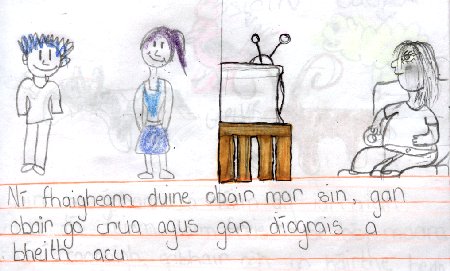 Ní fhaigheann duine obair mar sin, gan
obair go crua agus gan díograis a
bheith acu